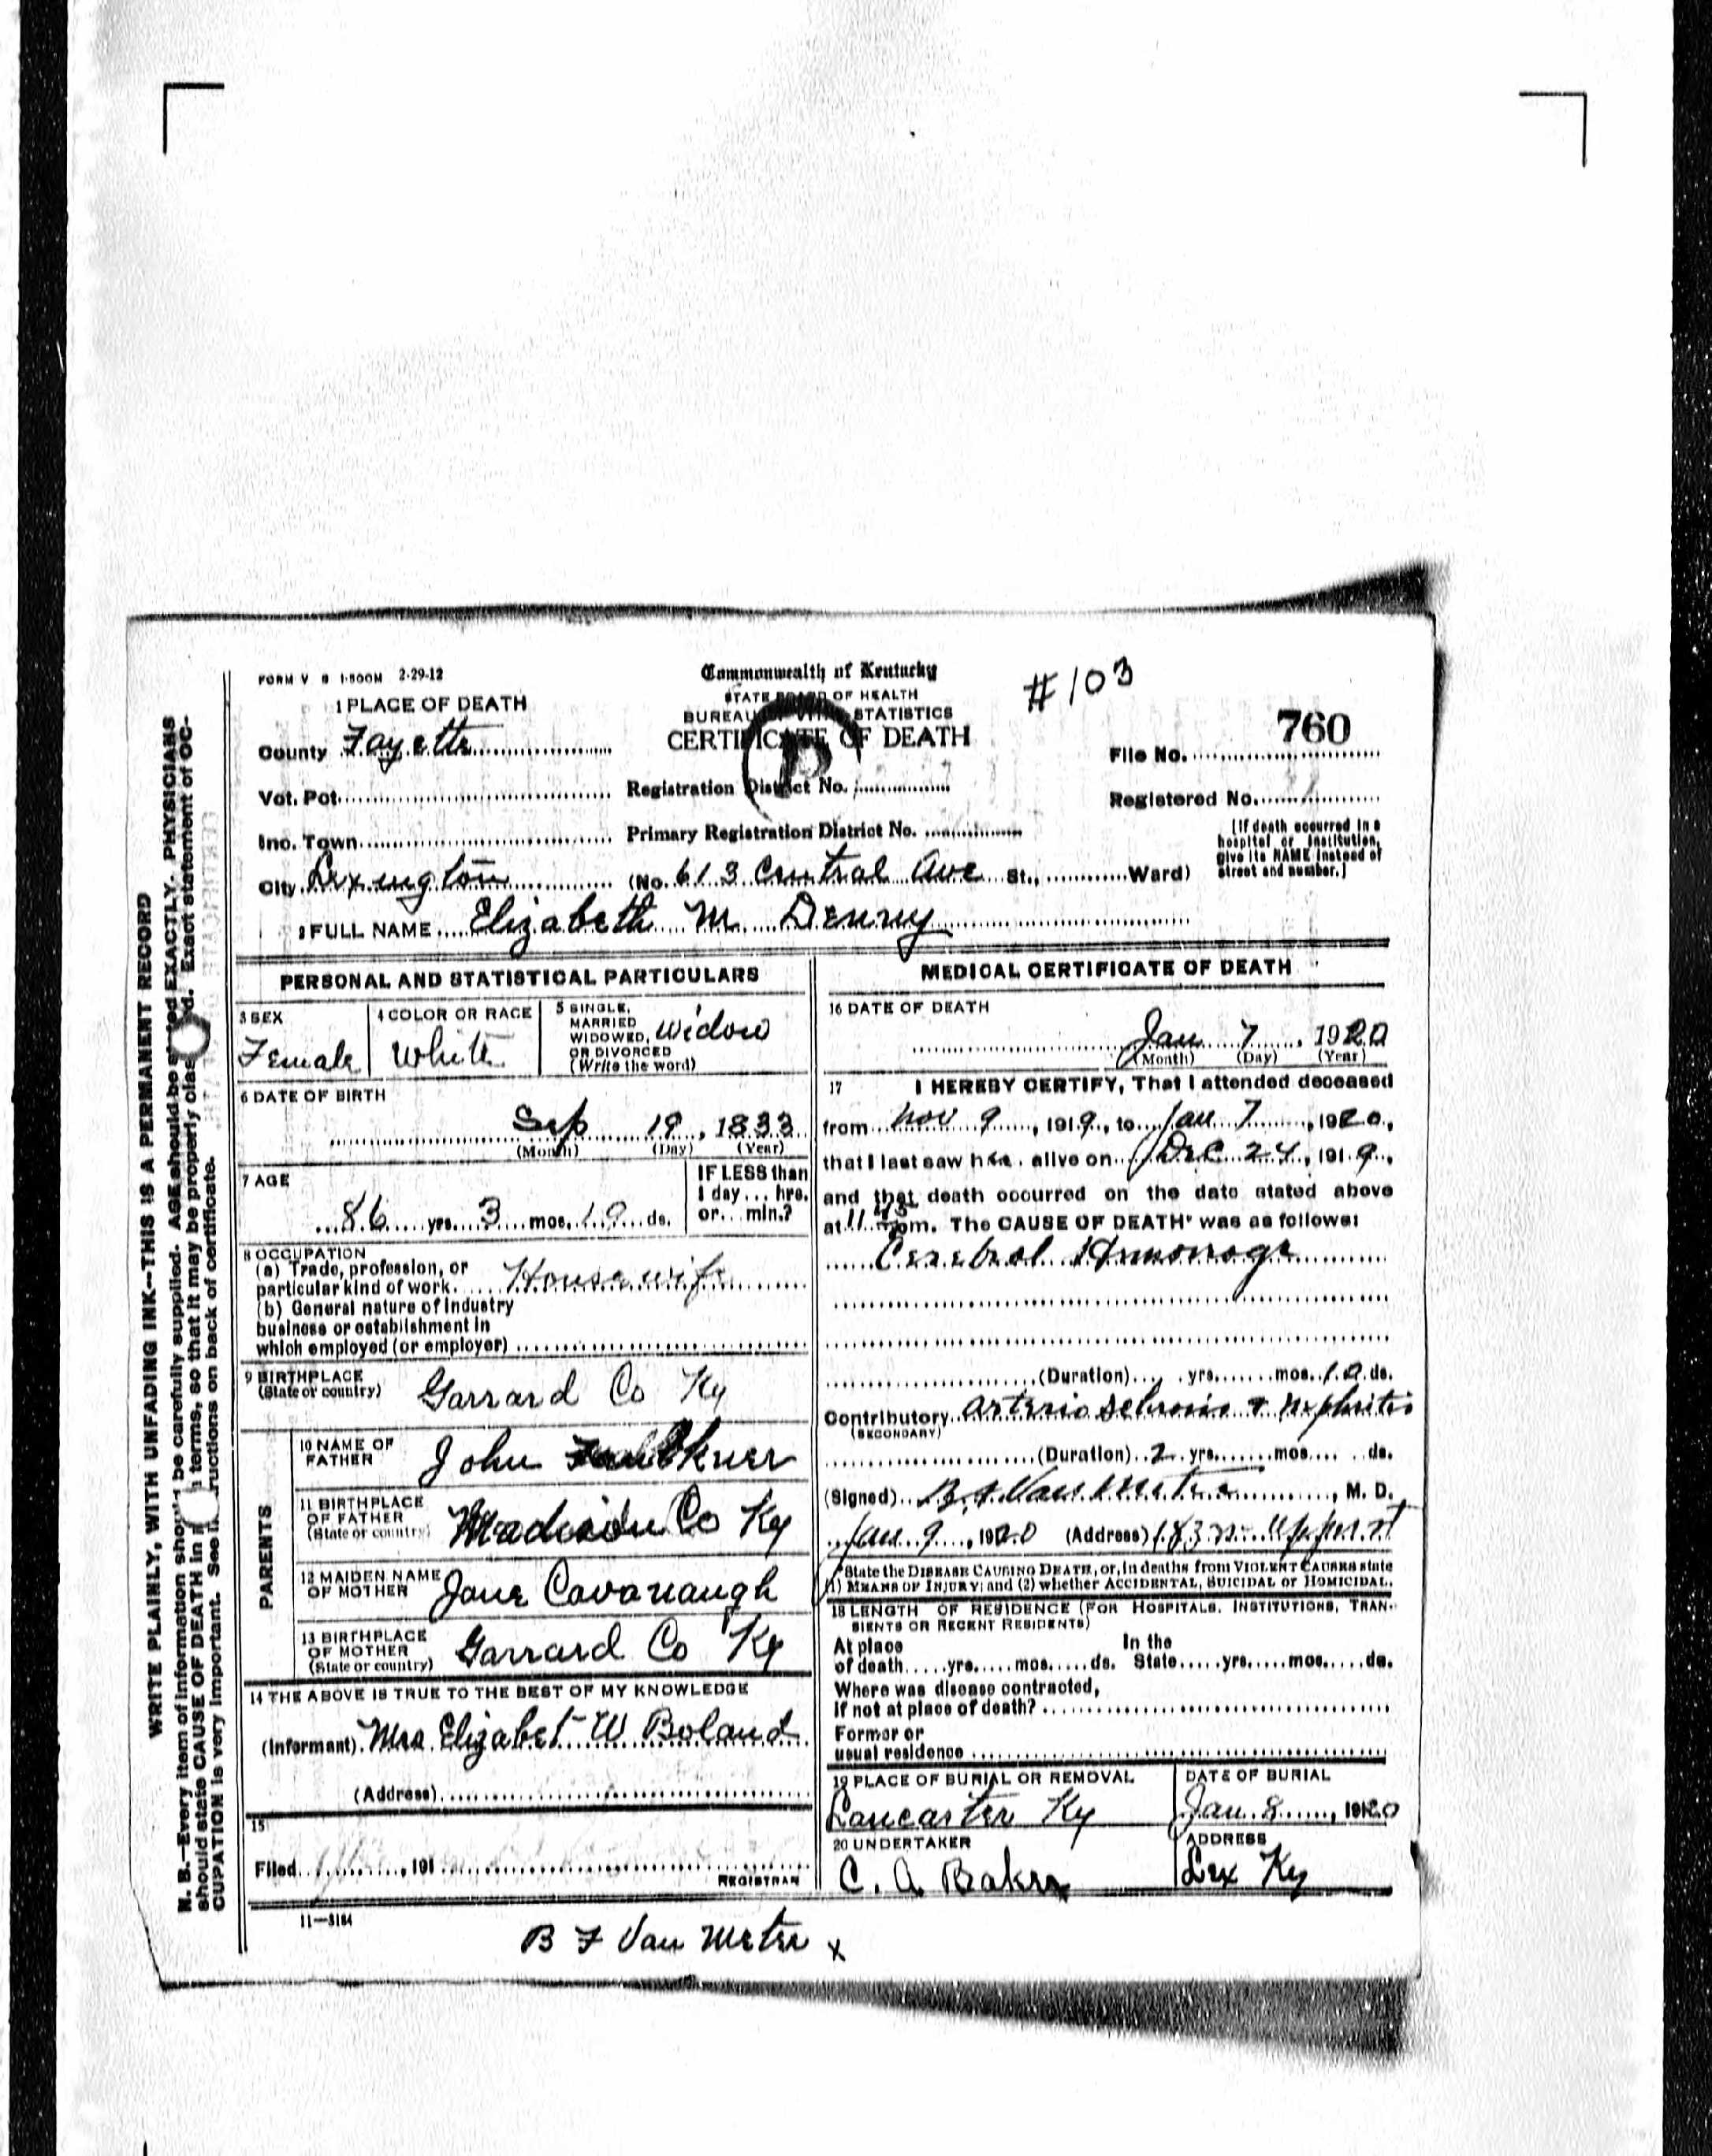 FORM V S 1-500M 2-29-12
Commonwealth of Kentucky
STATE BOARD OF HEALTH
BUREAU OF VITAL STATISTICS
CERTIFICATE OF DEATH
#103
760
File No.
Registered No.
[If death occurred in a
hospital or institution,
give its NAME instead of
street and number.]
1 PLACE OF DEATH
County Fayette
Vot. Pct. Registration District No.
Inc. Town Primary Registration District No.
City Lexington (No. 613 Central Ave St., Ward)
2 FULL NAME Elizabeth M Denny
PERSONAL AND STATISTICAL PARTICULARS
3 SEX
Female
4 COLOR OR RACE
White
5 SINGLE,
MARRIED
WIDOWED,
OR DIVORCED
(Write the word)
Widow
6 DATE OF BIRTH
Sep 19, 1833
(Month) (Day) (Year)
7 AGE
86 yrs. 3 mos. 19 ds.
IF LESS than
1 day... hrs.
or... min.?
8 OCCUPATION
(a) Trade, profession, or
particular kind of work. Housewife
(b) General nature of industry
business or establishment in
which employed (or employer)
9 BIRTHPLACE
(State or country) Garrard Co Ky
PARENTS
10 NAME OF
FATHER John Faulkner
11 BIRTHPLACE
OF FATHER
(State or country) Madison Co Ky
12 MAIDEN NAME
OF MOTHER Jane Cavanaugh
13 BIRTHPLACE
OF MOTHER
(State or country) Garrard Co Ky
14 THE ABOVE IS TRUE TO THE BEST OF MY KNOWLEDGE
(Informant) Mrs. Elizabet W Boland
(Address)
15
Filed , 191
REGISTRAR
MEDICAL CERTIFICATE OF DEATH
16 DATE OF DEATH
Jan 7, 1920
(Month) (Day) (Year)
17 I HEREBY CERTIFY, That I attended deceased
from Nov 9, 1919, to Jan 7, 1920,
that I last saw her alive on Dec 24, 1919,
and that death occurred on the date stated above
at 11 45 pm. The CAUSE OF DEATH* was as follows:
Cerebral Hemorrage
(Duration) yrs. mos. 10 ds.
Contributory Arterio sclerosis & nephritis
(SECONDARY)
(Duration) 2 yrs. mos. ds.
(Signed) B. F. Van Meter, M. D.
Jan 9, 1920 (Address) 183 N. Upper st
*State the DISEASE CAUSING DEATH, or, in deaths from VIOLENT CAUSES state
(1) MEANS OF INJURY; and (2) whether ACCIDENTAL, SUICIDAL or HOMICIDAL.
18 LENGTH OF RESIDENCE (FOR HOSPITALS, INSTITUTIONS, TRAN-
SIENTS OR RECENT RESIDENTS)
At place
of death yrs. mos. ds.
In the
State yrs. mos. ds.
Where was disease contracted,
If not at place of death?
Former or
usual residence
19 PLACE OF BURIAL OR REMOVAL
Lancaster Ky
DATE OF BURIAL
Jan. 8, 1920
20 UNDERTAKER
C. A Baker
ADDRESS
Lex Ky
11-3184
B F Van Meter x
WRITE PLAINLY, WITH UNFADING INK--THIS IS A PERMANENT RECORD
N. B.--Every item of information should be carefully supplied. AGE should be stated EXACTLY. PHYSICIANS
should state CAUSE OF DEATH in terms, so that it may be properly clas d. Exact statement of OC-
CUPATION is very important. See ructions on back of certificate.